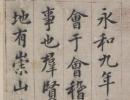 永和九年
會于會稽
事也羣賢
地有崇山